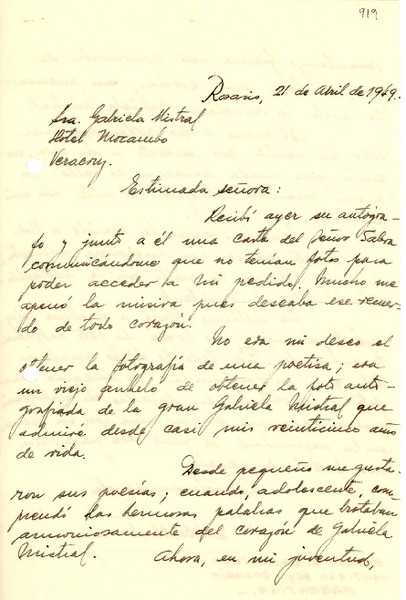 919
Rosario, 21 de Abril de 1949.
Sra. Gabriela Mistral
Hotel Mocambo
Veracruz.
Estimada señora:
Recibí ayer su autógra-
fo y junto a él una carta del Señor Sabra
comunicándome que no tenían fotos para
poder acceder a mi pedido. Mucho me
apenó la misiva pues deseaba ese recuer-
do de todo corazón.
No era mi deseo el
obtener la fotografía de una poetisa; era
un viejo anhelo de obtener la foto auto-
grafiada de la gran Gabriela Mistral que
admiré desde casi mis veinticinco años
de vida.
Desde pequeño me gusta-
ron sus poesías; cuando, adolescente, com-
prendí las hermosas palabras que brotaban
armoniosamente del corazón de Gabriela
Mistral. Ahora, en mi juventud,